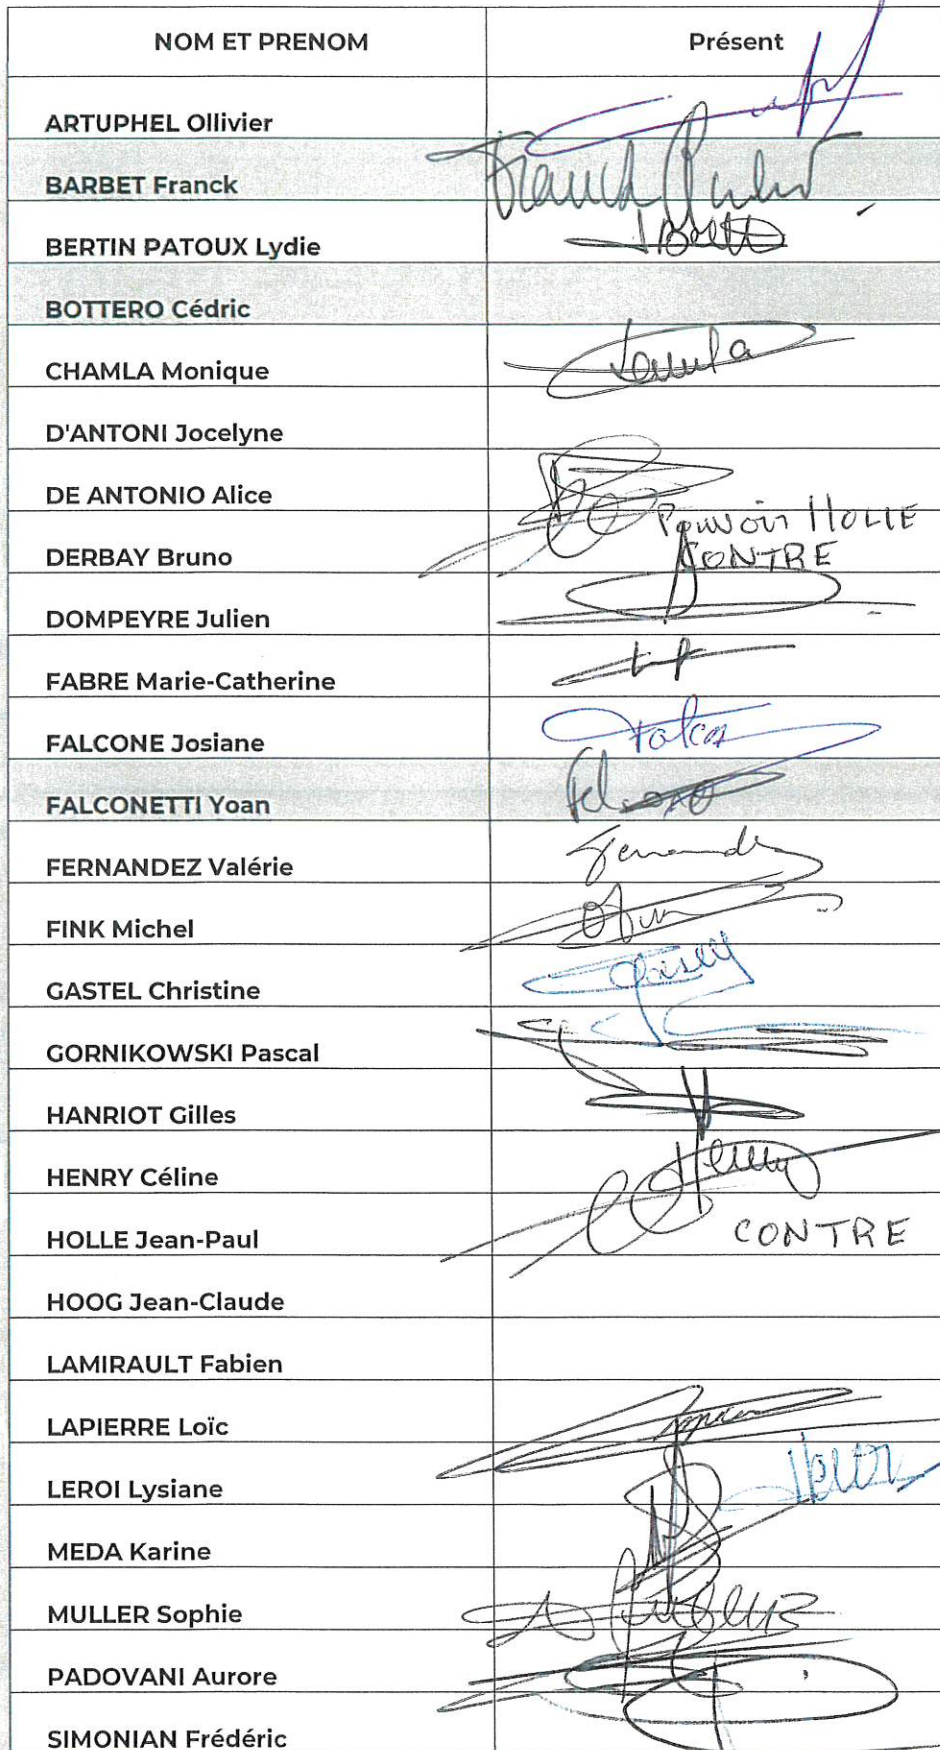 NOM ET PRENOM Présent
ARTUPHEL Ollivier
BARBET Franck Franck
BERTIN PATOUX Lydie
BOTTERO Cédric
CHAMLA Monique
D'ANTONI Jocelyne
DE ANTONIO Alice
Pouvoir HOLLE
DERBAY Bruno CONTRE
DOMPEYRE Julien
FABRE Marie-Catherine
FALCONE Josiane
FALCONETTI Yoan
FERNANDEZ Valérie
FINK Michel
GASTEL Christine
GORNIKOWSKI Pascal
HANRIOT Gilles
HENRY Céline Henry
HOLLE Jean-Paul CONTRE
HOOG Jean-Claude
LAMIRAULT Fabien
LAPIERRE Loïc
LEROI Lysiane
MEDA Karine
MULLER Sophie
PADOVANI Aurore
SIMONIAN Frédéric